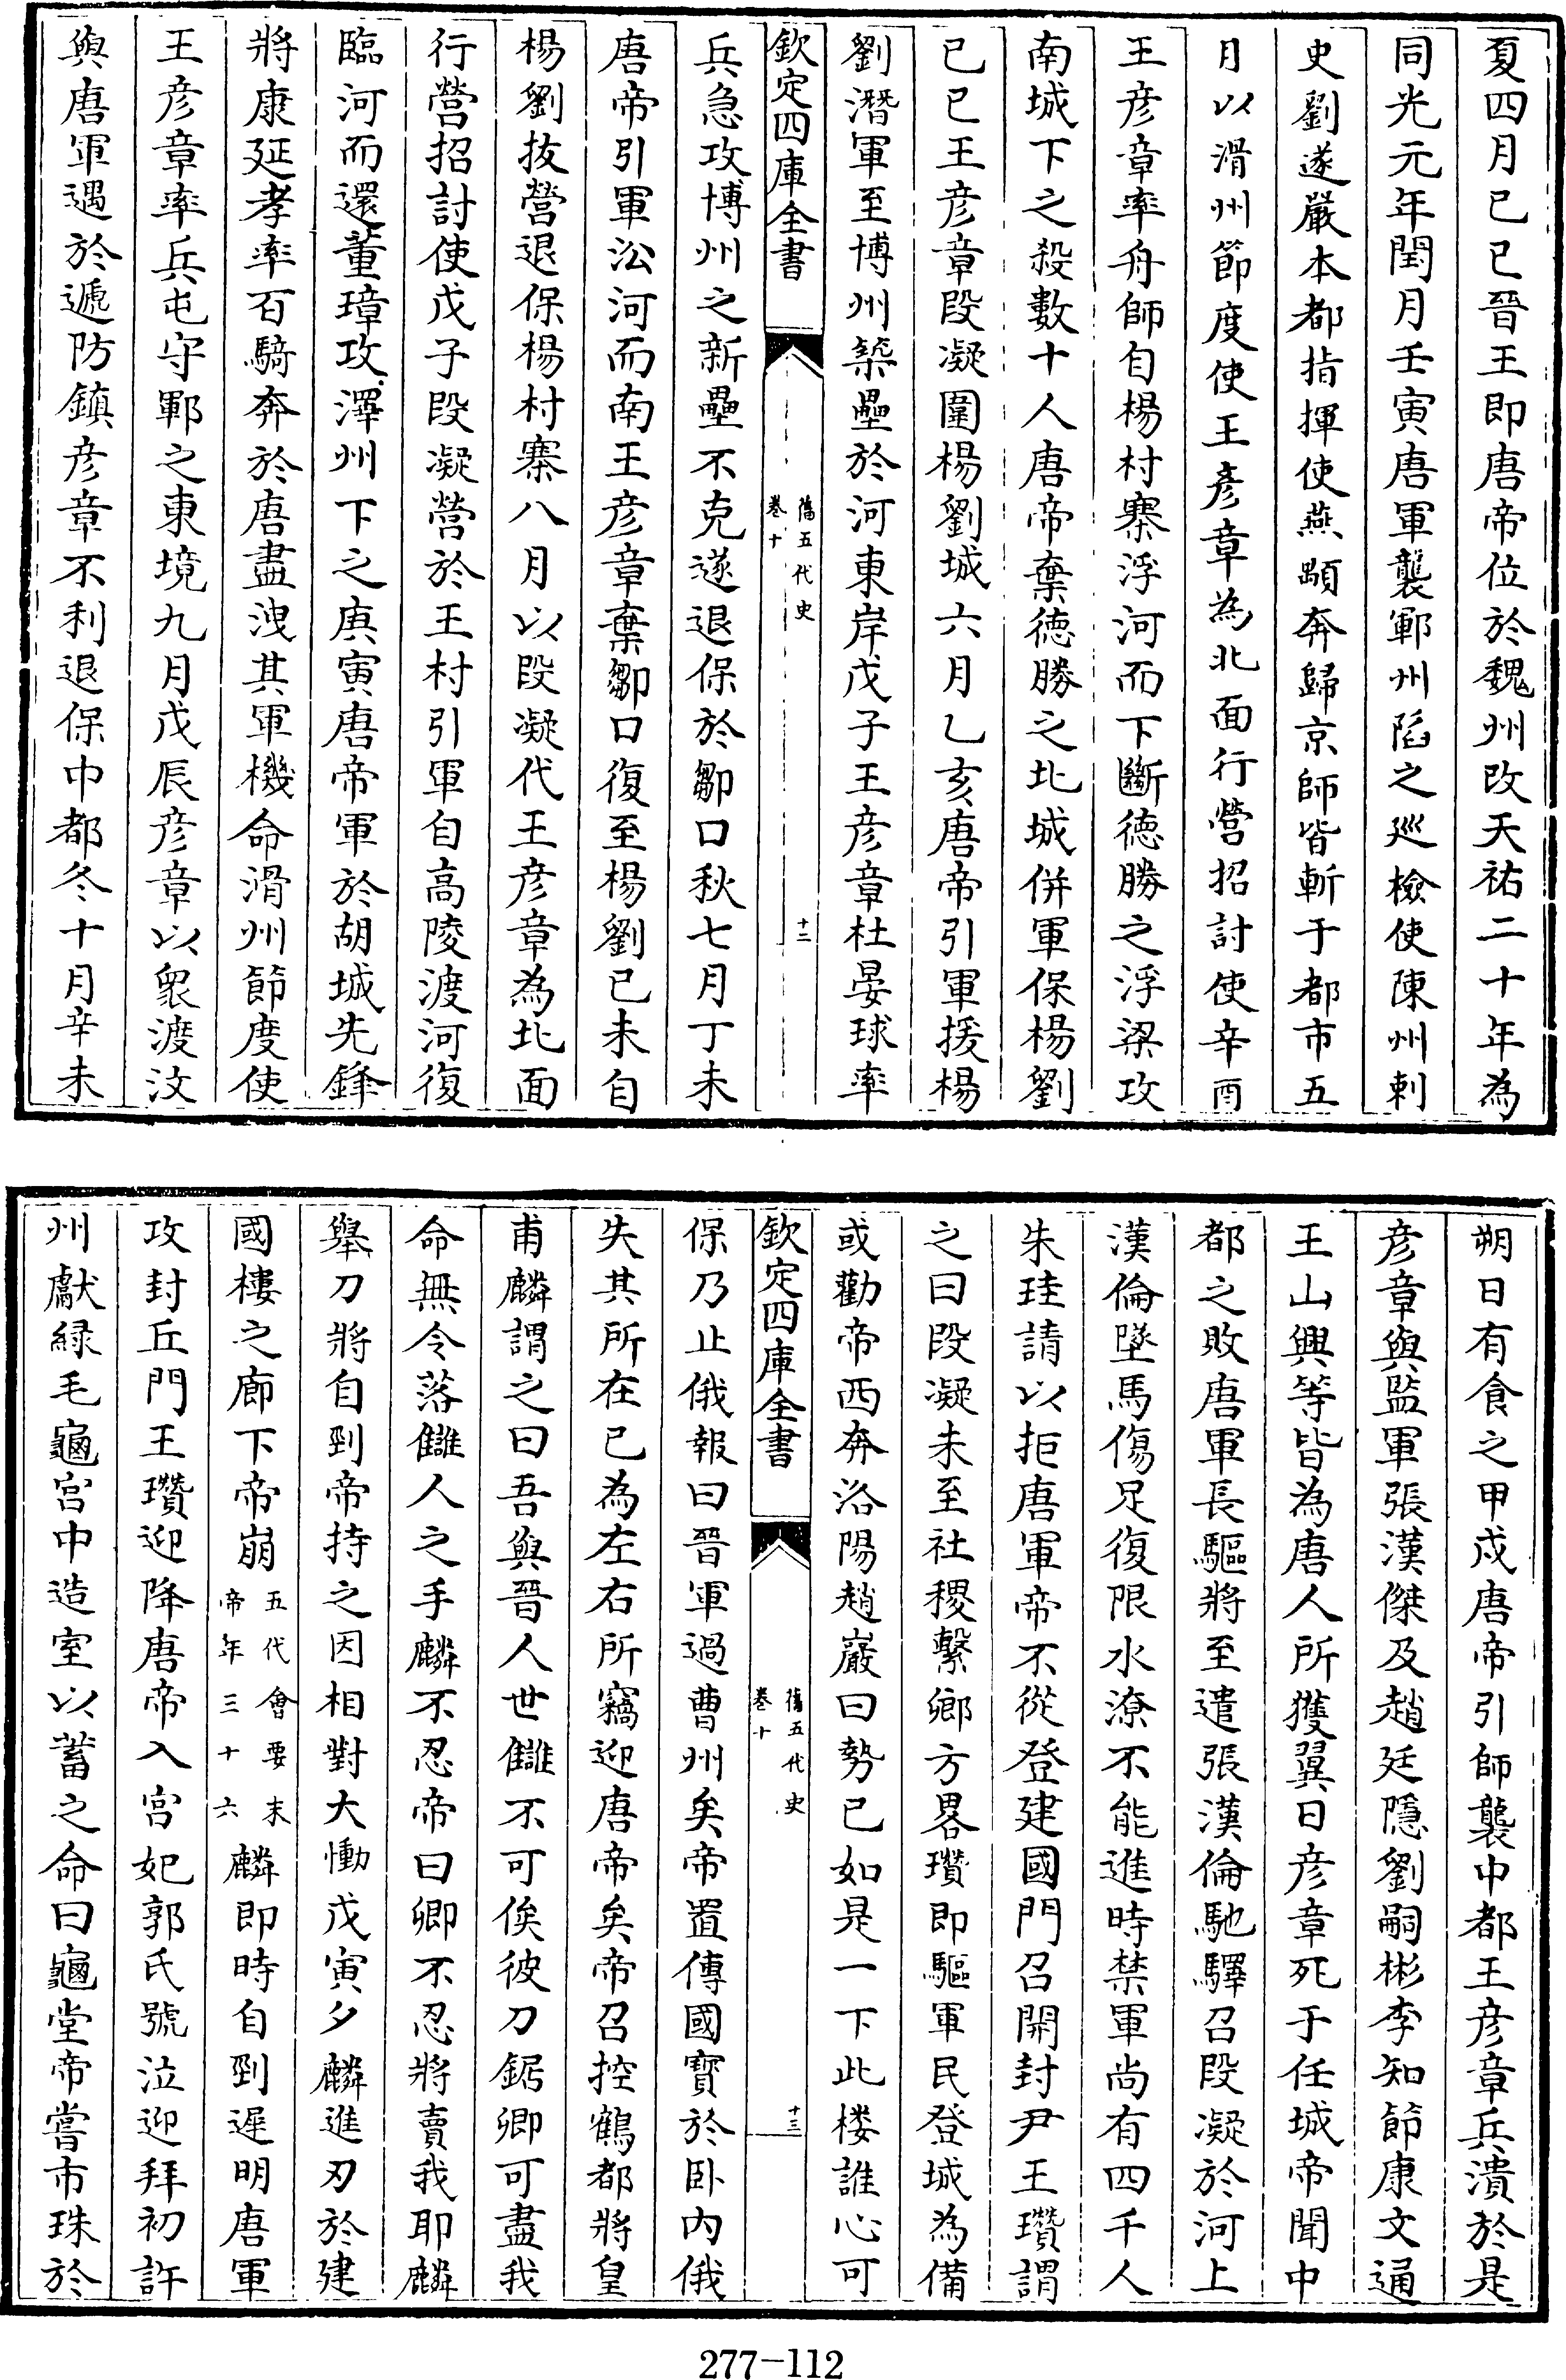 夏四月己巳晉王即唐帝位於魏州改天祐二十年為
同光元年閏月壬寅唐軍襲鄆州陷之巡檢使陳州刺
史劉遂嚴本都指揮使燕顒奔歸京師皆斬于都市五
月以滑州節度使王彥章為北面行營招討使辛酉
王彥章率舟師自楊村寨浮河而下斷德勝之浮梁攻
南城下之殺數十人唐帝棄德勝之北城併軍保楊劉
己巳王彥章段凝圍楊劉城六月乙亥唐帝引軍援楊
劉潛軍至博州築壘於河東岸戊子王彥章杜晏球率
欽定四庫全書
舊五代史
卷十
十二
兵急攻博州之新壘不克遂退保於鄒口秋七月丁未
唐帝引軍沿河而南王彥章棄鄒口復至楊劉已未自
楊劉拔營退保楊村寨八月以段凝代王彥章為北面
行營招討使戊子段凝營於王村引軍自高陵渡河復
臨河而還董璋攻澤州下之庚寅唐帝軍於胡城先鋒
將康延孝率百騎奔於唐盡洩其軍機命滑州節度使
王彥章率兵屯守鄆之東境九月戊辰彥章以衆渡汶
與唐軍遇於遞防鎮彥章不利退保中都冬十月辛未
朔日有食之甲戌唐帝引師襲中都王彥章兵潰於是
彥章與監軍張漢傑及趙廷隱劉嗣彬李知節康文通
王山興等皆為唐人所獲翼日彥章死于任城帝聞中
都之敗唐軍長驅將至遣張漢倫馳驛召段凝於河上
漢倫墜馬傷足復限水潦不能進時禁軍尚有四千人
朱珪請以拒唐軍帝不從登建國門召開封尹王瓚謂
之曰段凝未至社稷繫鄉方畧瓚即驅軍民登城為備
或勸帝西奔洛陽趙巖曰勢已如是一下此楼誰心可
欽定四庫全書
舊五代史
卷十
十三
保乃止俄報曰晉軍過曹州矣帝置傳國寶於卧內俄
失其所在已為左右所竊迎唐帝矣帝召控鶴都將皇
甫麟謂之曰吾與晉人世讎不可俟彼刀鋸卿可盡我
命無令落讎人之手麟不忍帝曰卿不忍將賣我耶麟
舉刀將自剄帝持之因相對大慟戊寅夕麟進刃於建
國樓之廊下帝崩五代會要末帝年三十六麟即時自剄遲明唐軍
攻封丘門王瓚迎降唐帝入宮妃郭氏號泣迎拜初許
州獻緑毛龜宮中造室以蓄之命曰龜堂帝嘗市珠於
277-112